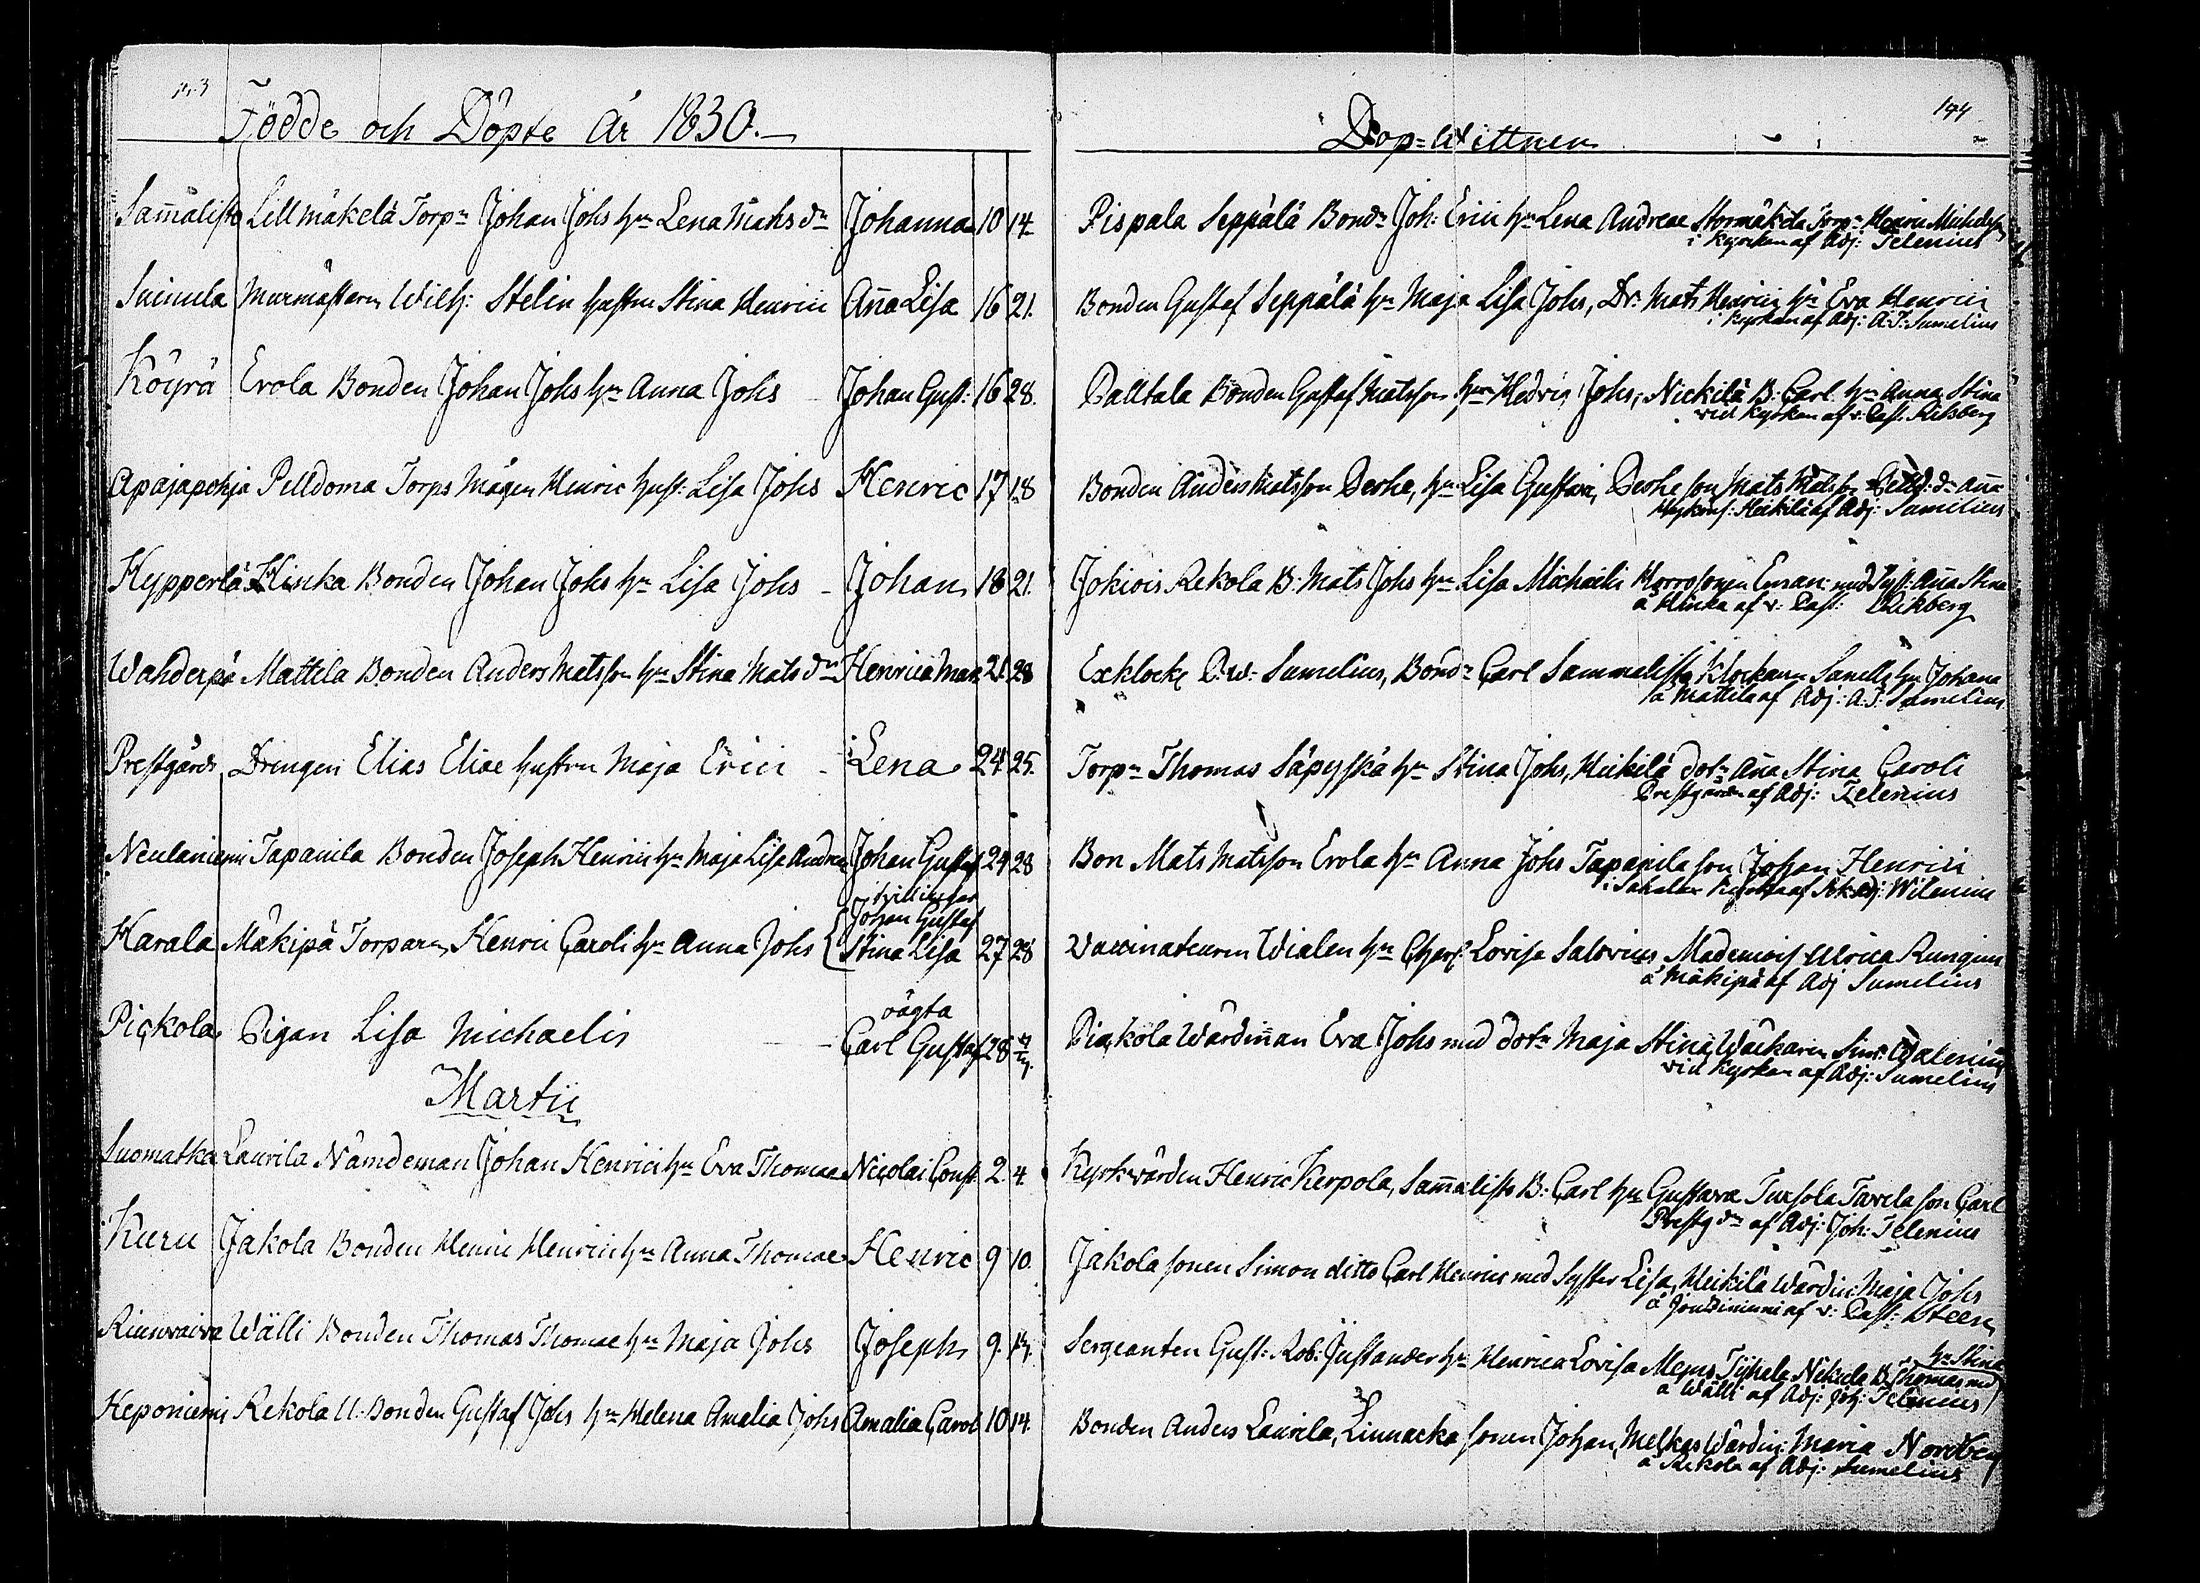 143
Födde och Döpte År 1830.
Sam̄alisto Lillmäkelä Torpn Johan Johs hn Lena Mats dn Johanna 10 14
Suinula Murmästarn Wilh: Stelin hustrun Stina Henrici An̄a Lisa 16 21.
Köyrä Erola Bonden Johan Johs hn Anna Johs Johan Gust: 16 28.
Apajapohja Pelldoma Torps Mågen Henric hust: Lisa Johs Henric 17 18
Hypperlä Klinka Bonden Johan Johs hn Lisa Johs Johan 18 21.
Wahderpä Mattila Bonden Anders Matsson hn Stina Mats dn Henrica Mar: 21 28
Prestgårds Drengen Elias Eliae hustrun Maja Erici Lena 24 25.
Neulaniemi Tapanila Bonden Joseph Henrici hn Maja Lisa Andreae Johan Gustaf 24 28
tvillingar
Johan Gustaf
Harala Mäkipä Torparn Henric Caroli hn Anna Johs Stina Lisa 27 28
oägta
Pickola Pigan Lisa Michaelis Carl Gustaf 28
Martii
Suomatka Laurila Nämdeman Johan Henrici hn Eva Thomae Nicolai Const. 2. 4
Kuru Jakola Bonden Henric Henrici hn Anna Thomae Henric 9 10.
Wälli Bonden Thomas Thomae hn Maja Johs Joseph 9.
Heponiemi Rekola U. Bonden Gustaf Johs hn Helena Amalia Johs Amalia Carol 10 14.
144
Dop-Wittnen
Pispala Seppälä Bondn Joh: Erici hn Lena Andreae Stormäkelä Torpn Henric Michelss
i Kyrckan af Adj: Telenius
Bonden Gustaf Seppälä hn Maja Lisa Johs, Dr: Mats Henrici hn Eva Henrici
i Kyrkan af Adj: A. J. Sumelius
Palttala Bonden Gustaf Matsson hn Hedvig Johs, Nickilä B: Carl hn Anna Stina
vid Kyrkan af v: Past:
Bonden Anders Matsson Perhe, hn Lisa Gustavi, Perhe son Mats Matsson dn An̄a
Heikilä af Adj: Sumelius
Jokiois Rekola B: Mats Johs hn Lisa Michaelis med Syst: An̄a Stina
å Klinka af v: Past:
Exklock: Sumelius, Bondn Carl Sammalisto, Klockarn hn Johana
å Mattila af Adj: A. J. Sumelius
Torpn Thomas Säpyskä hn Stina Johs, Heikilä dotn An̄a Stina Caroli
Prestgården af Adj: Telenius
Bon Mats Matsson Erola hn Anna Johs Tapanila son Johan Henrici
i Sahalax Kyrka af Adj: Wilenius
Vaccinateuren Wialen hn Charl: Lovisa Salovius Mademois Ulrica
å Mäkipä af Adj Sumelius
Pickola Wärdin̄an Eva Johs med dotn Maja Stina,
vid Kyrkan af Adj: Sumelius
Kyrkvärden Henric Kerpola, Sam̄alisto B: Carl hn Gustava Tursola Tavela son Carl
Prestg dn af Adj: Joh: Telenius
Jakola sonen Simon ditto Carl Henric med Syster Lisa, Heikilä Wärdin: Maja Johs
af v: Past: Steen
Sergeanten Gust: Rob: Justander hn Henrica Lovisa Nikula B: Thomas med
hn Stina
å Wälli af Adj: Joh: Telenius
Bonden Anders Laurila, Linnacka sonen Johan, Melkas Wärdin: Maria Nordberg
å Rekola af Adj: Sumelius